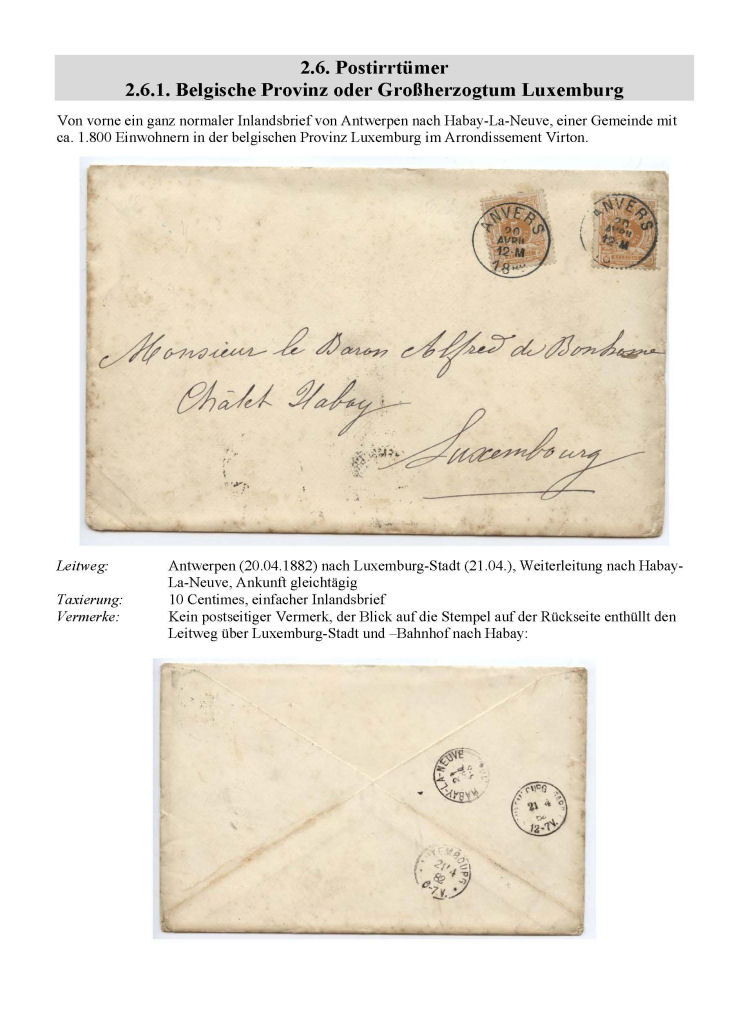 2.6. Postirrtümer
2.6.1. Belgische Provinz oder Großherzogtum Luxemburg
Von vorne ein ganz normaler Inlandsbrief von Antwerpen nach Habay-La-Neuve, einer Gemeinde mit
ca. 1.800 Einwohnern in der belgischen Provinz Luxemburg im Arrondissement Virton.
ANVERS
20
AVRIL
12-M
ANVERS
20
AVRIL
12-M
Monsieur le Baron Alfred de Bonhome
Châlet Habay
Luxembourg
Leitweg: Antwerpen (20.04.1882) nach Luxemburg-Stadt (21.04.), Weiterleitung nach Habay-
La-Neuve, Ankunft gleichtägig
Taxierung: 10 Centimes, einfacher Inlandsbrief
Vermerke: Kein postseitiger Vermerk, der Blick auf die Stempel auf der Rückseite enthüllt den
Leitweg über Luxemburg-Stadt und –Bahnhof nach Habay:
HABAY-LA-NEUVE
21 4
12-7V.
LUXEMBOURG
21 4
82